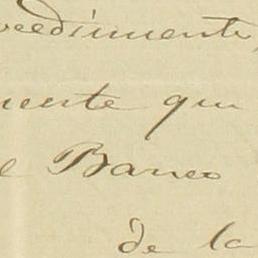 vedimiente,
mente que
el Banco
de la